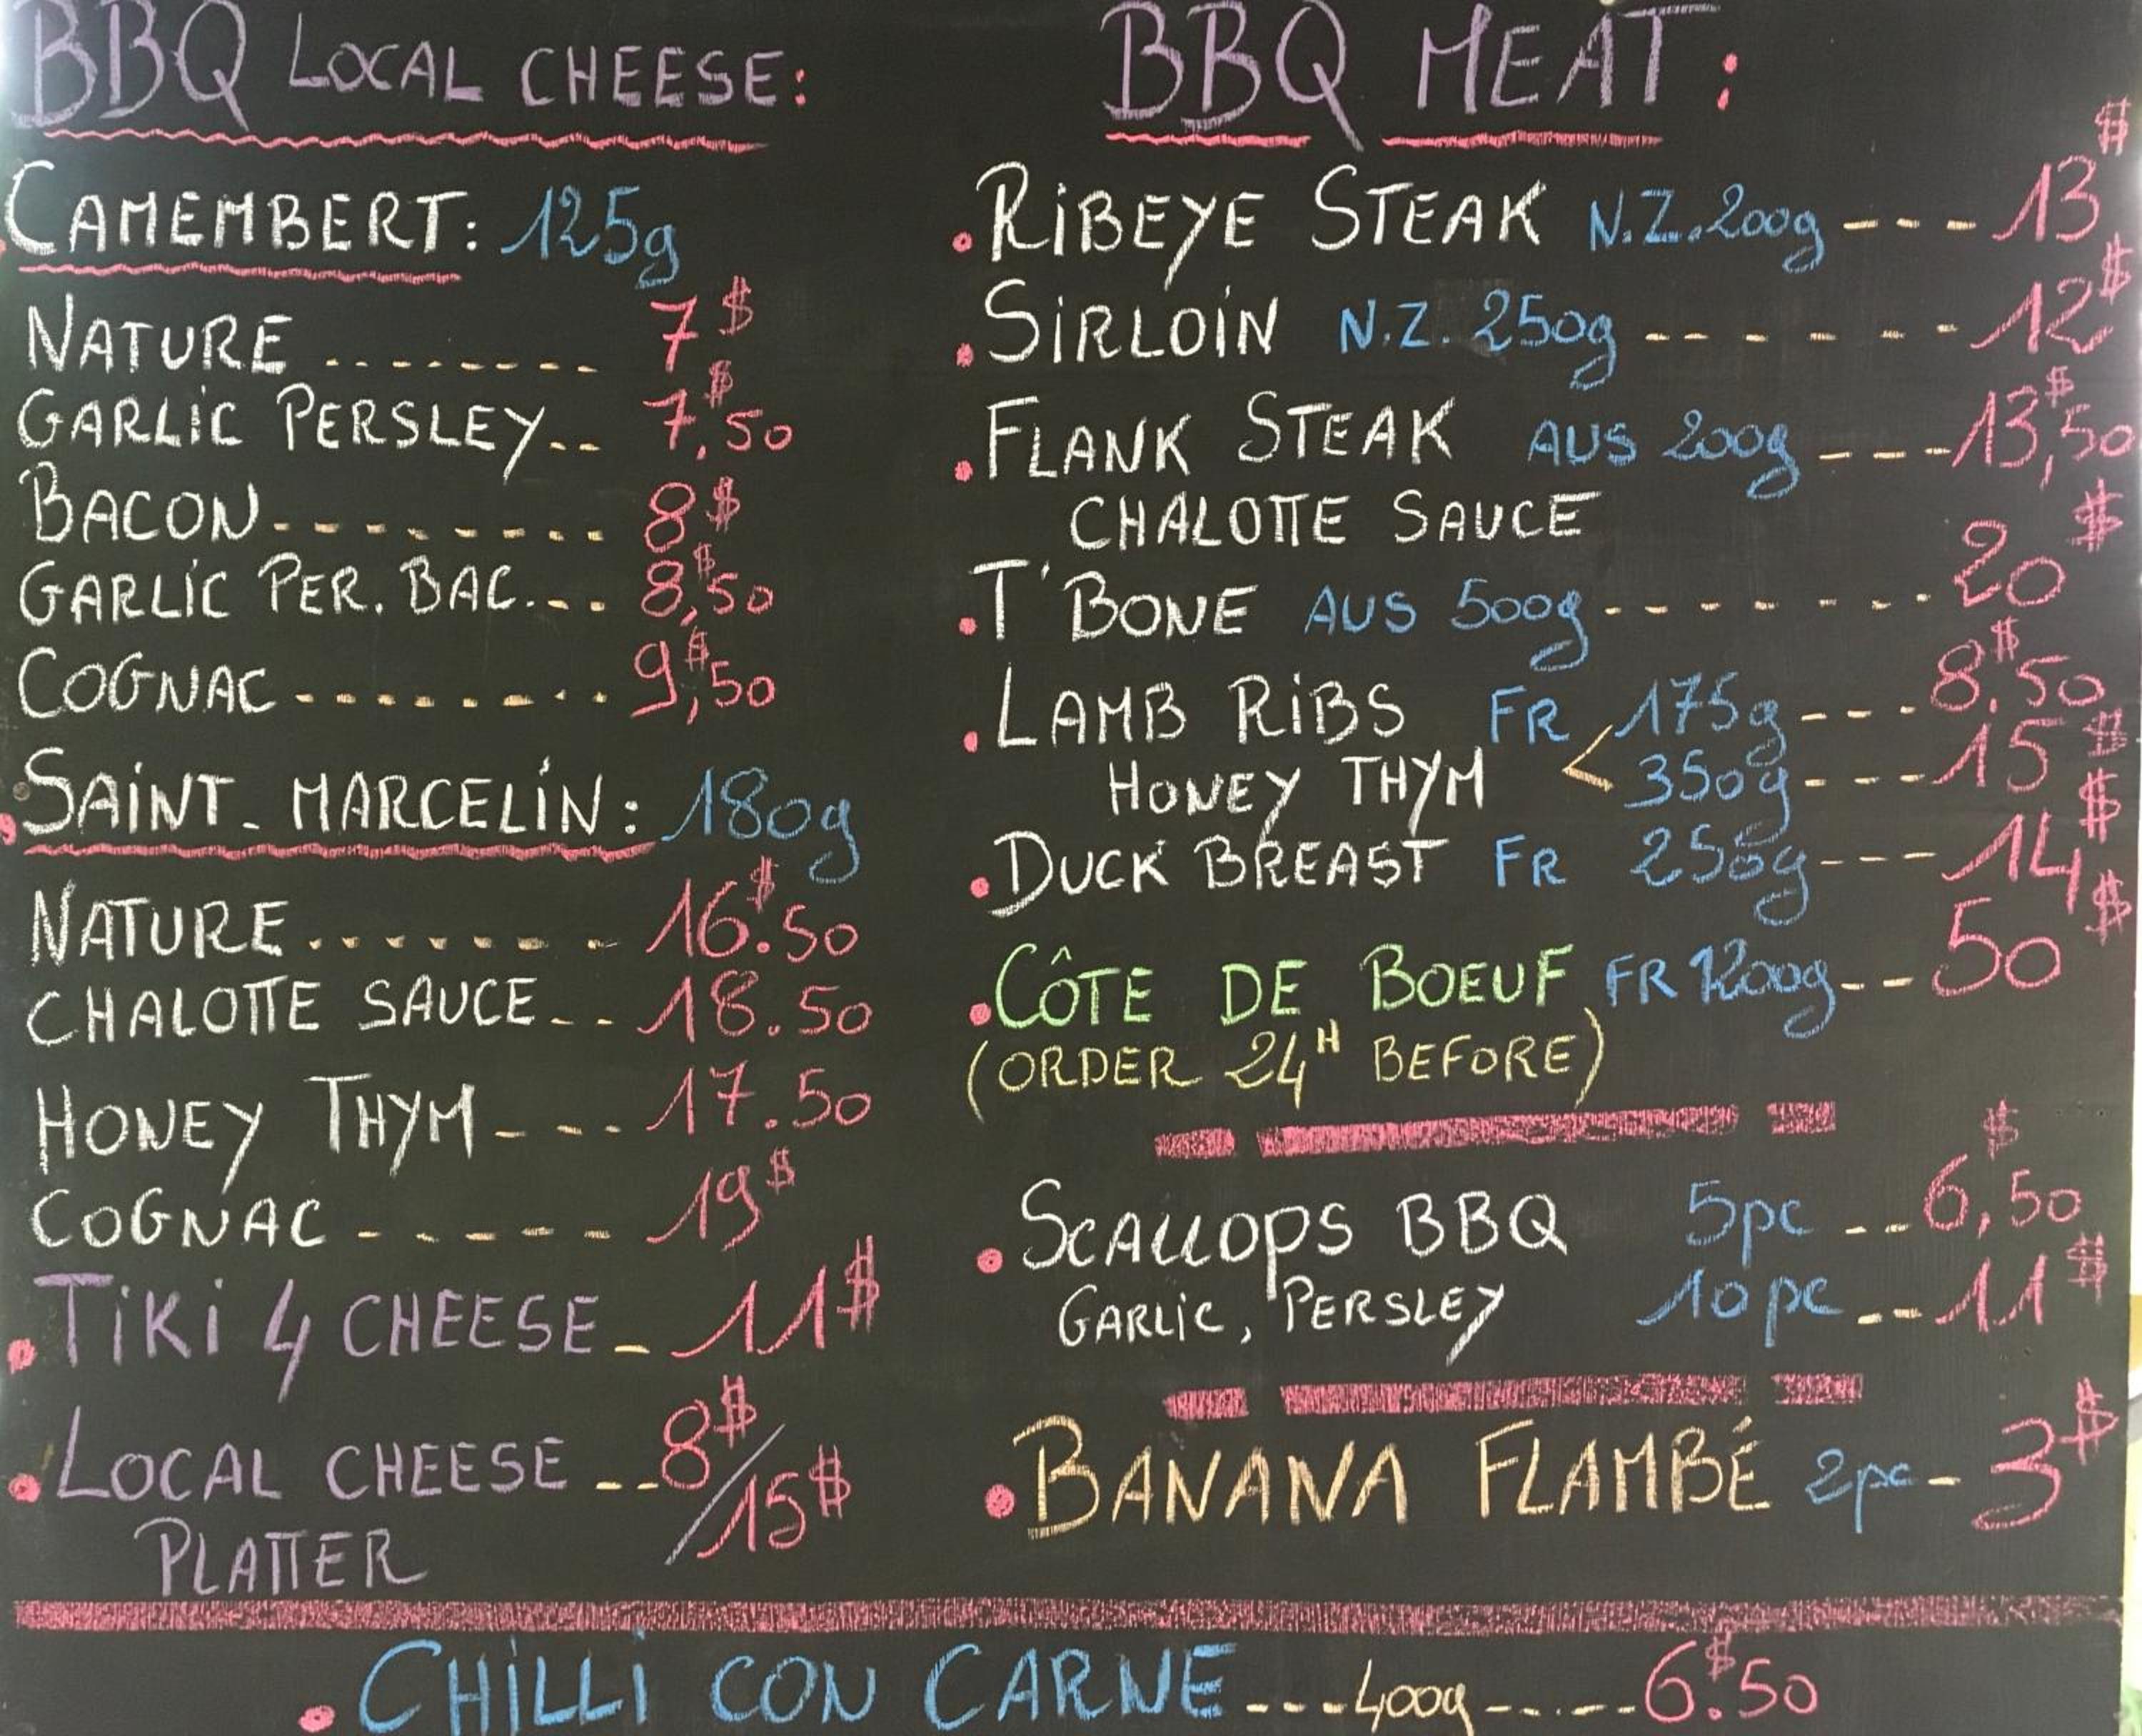 BBQ LOCAL CHEESE:
CAMEMBERT: 125g
NATURE ........ 7$
GARLIC PERSLEY... 7,$50
BACON......... 8$
GARLIC PER. BAC.... 8,$50
COGNAC......... 9,$50
SAINT-MARCELIN: 180g
NATURE ........ 16.$50
CHALOTTE SAUCE... 18.50
HONEY THYM ---- 17.50
COGNAC ------ 19$
TIKI 4 CHEESE - 11$
LOCAL CHEESE --- 8$/15$
PLATTER
BBQ MEAT:
.RIBEYE STEAK N.Z. 200g ---- 13$
.SIRLOIN N.Z. 250g ------- 12$
.FLANK STEAK AUS 200g ---- 13,$50
CHALOTTE SAUCE
.T'BONE AUS 500g -------- 20$
.LAMB RIBS FR 175g ---- 8.$50
HONEY THYM < 350g ---- 15$
.DUCK BREAST FR 250g --- 14$
.CÔTE DE BOEUF FR 1200g --- 50$
(ORDER 24H BEFORE)
.SCALLOPS BBQ 5pc --- 6,$50
GARLIC, PERSLEY 10pc --- 11$
.BANANA FLAMBÉ 2pc - 3$
.CHILLI CON CARNE ---- 400g ------ 6.$50